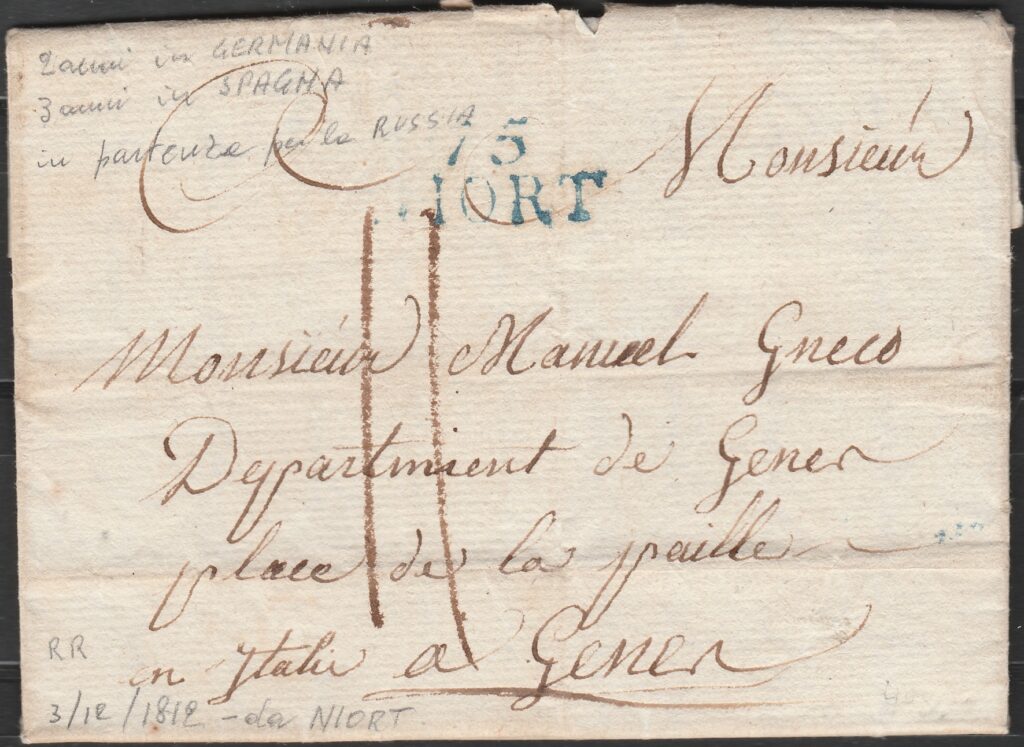 2 anni in GERMANIA
3 anni in SPAGNA
in partenza per la RUSSIA
75
NIORT
Monsieur
Monsieúr Manuel Gneco
Deppartmient de Genes
place de la paille
en Italie a Genes
RR
3/12/1812 - da NIORT